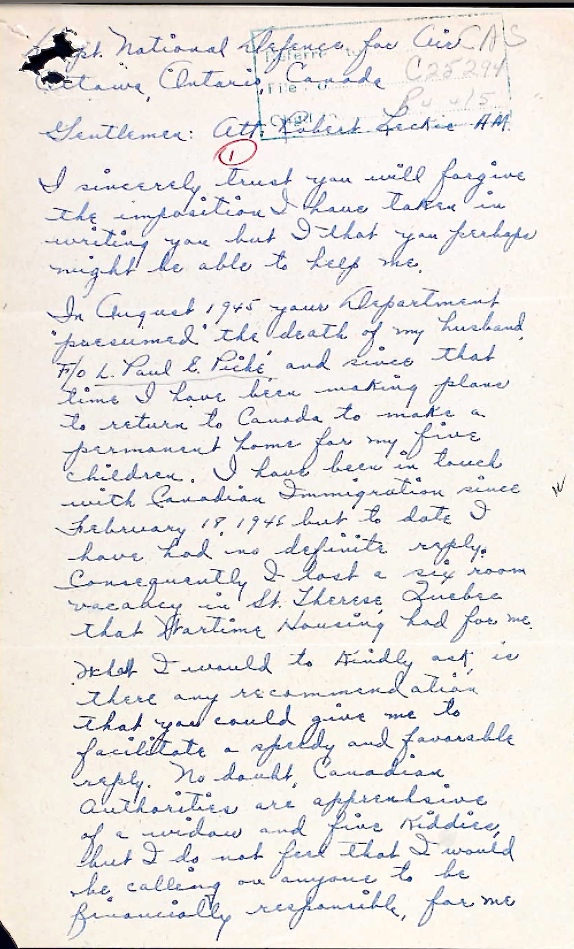 Dept. National Defence for Air CAS
Ottawa, Ontario, Canada
Referred to
C25294
File
B4 4/5
Chgd
Gentlemen: Att. Robert Leckie AM.
1
I sincerely trust you will forgive
the imposition I have taken in
writing you but I that you perhaps
might be able to help me.
In August 1945 your Department
"presumed" the death of my husband,
F/o L. Paul E. Piché and since that
time I have been making plans
to return to Canada to make a
permanent home for my five
children. I have been in touch
with Canadian Immigration since
February 18 1946 but to date I
have had no definite reply.
Consequently I lost a six room
vacancy in St. Therese, Quebec
that Wartime Housing had for me.
What I would to kindly ask, is
there any recommendation
that you could give me to
facilitate a speedy and favorable
reply. No doubt, Canadian
Authorities are apprehsive
of a widow and five kiddies,
but I do not feel that I would
be calling on anyone to be
financially responsible, for me